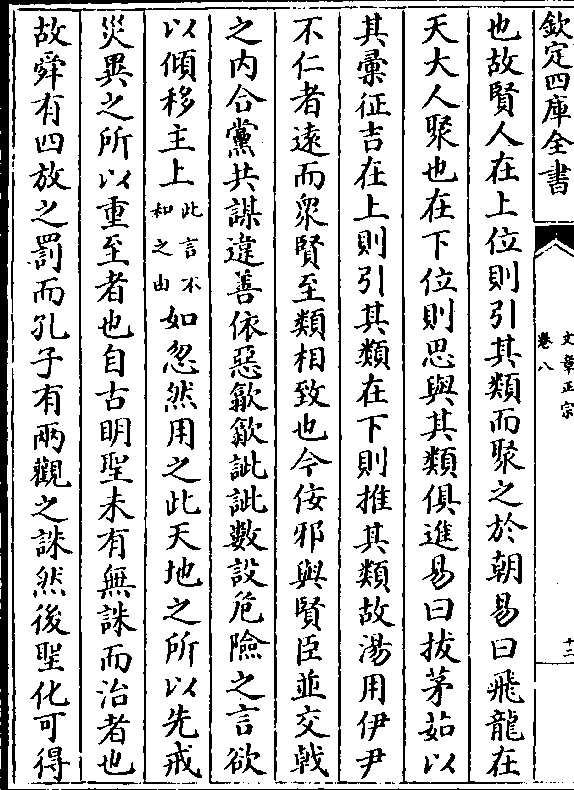 欽定四庫全書
文章正宗
卷八
十二
也故賢人在上位則引其類而聚之於朝易曰飛龍在
天大人聚也在下位則思與其類俱進易曰拔茅茹以
其彚征吉在上則引其類在下則推其類故湯用伊尹
不仁者遠而衆賢至類相致也今佞邪與賢臣並交㦸
之内合黨共謀違善依惡歙歙訿訿數設危險之言欲
以傾移主上此言不和之由如忽然用之此天地之所以先戒
災異之所以重至者也自古明聖未有無誅而治者也
故舜有四放之罰而孔子有兩觀之誅然後聖化可得